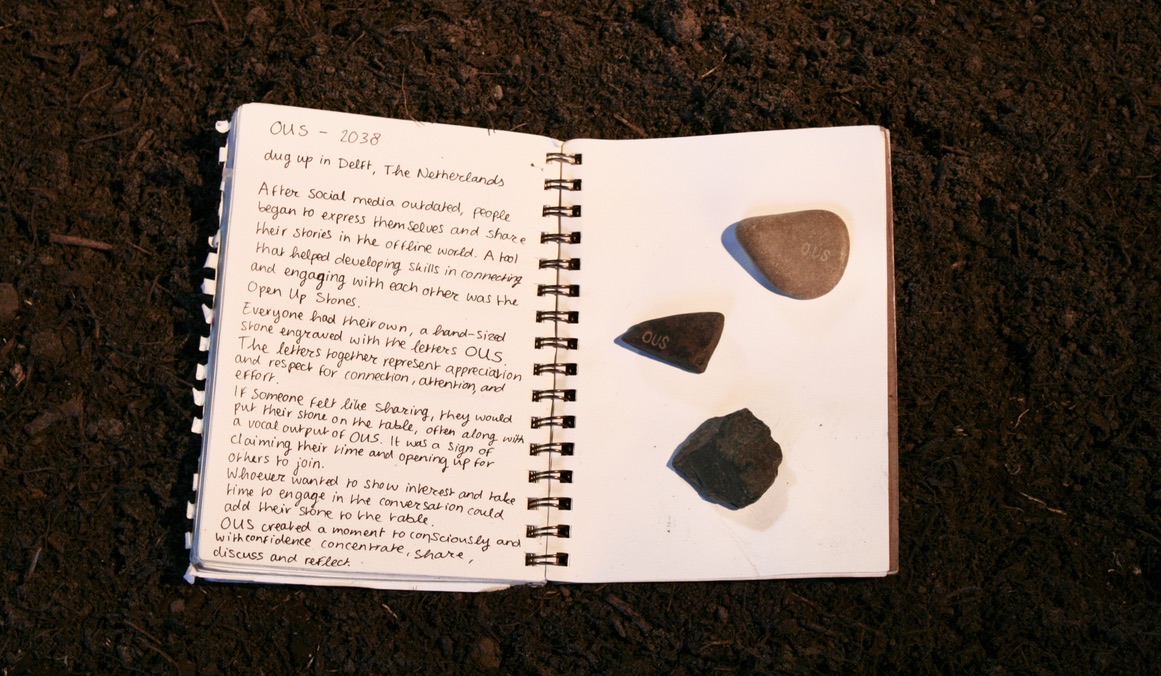 OUS - 2038
dug up in Delft, The Netherlands
After social media outdated, people
began to express themselves and share
their stories in the offline world. A tool
that helped developing skills in connecting
and engaging with each other was the
Open Up Stones.
Everyone had their own, a hand-sized
stone engraved with the letters OUS.
The letters together represent appreciation
and respect for connection, attention, and
effort.
If someone felt like sharing, they would
put their stone on the table, often along with
a vocal output of OUS. It was a sign of
claiming their time and opening up for
others to join.
Whoever wanted to show interest and take
time to engage in the conversation could
add their stone to the table.
OUS created a moment to consciously and
with confidence concentrate, share,
discuss and reflect.
OUS
OUS